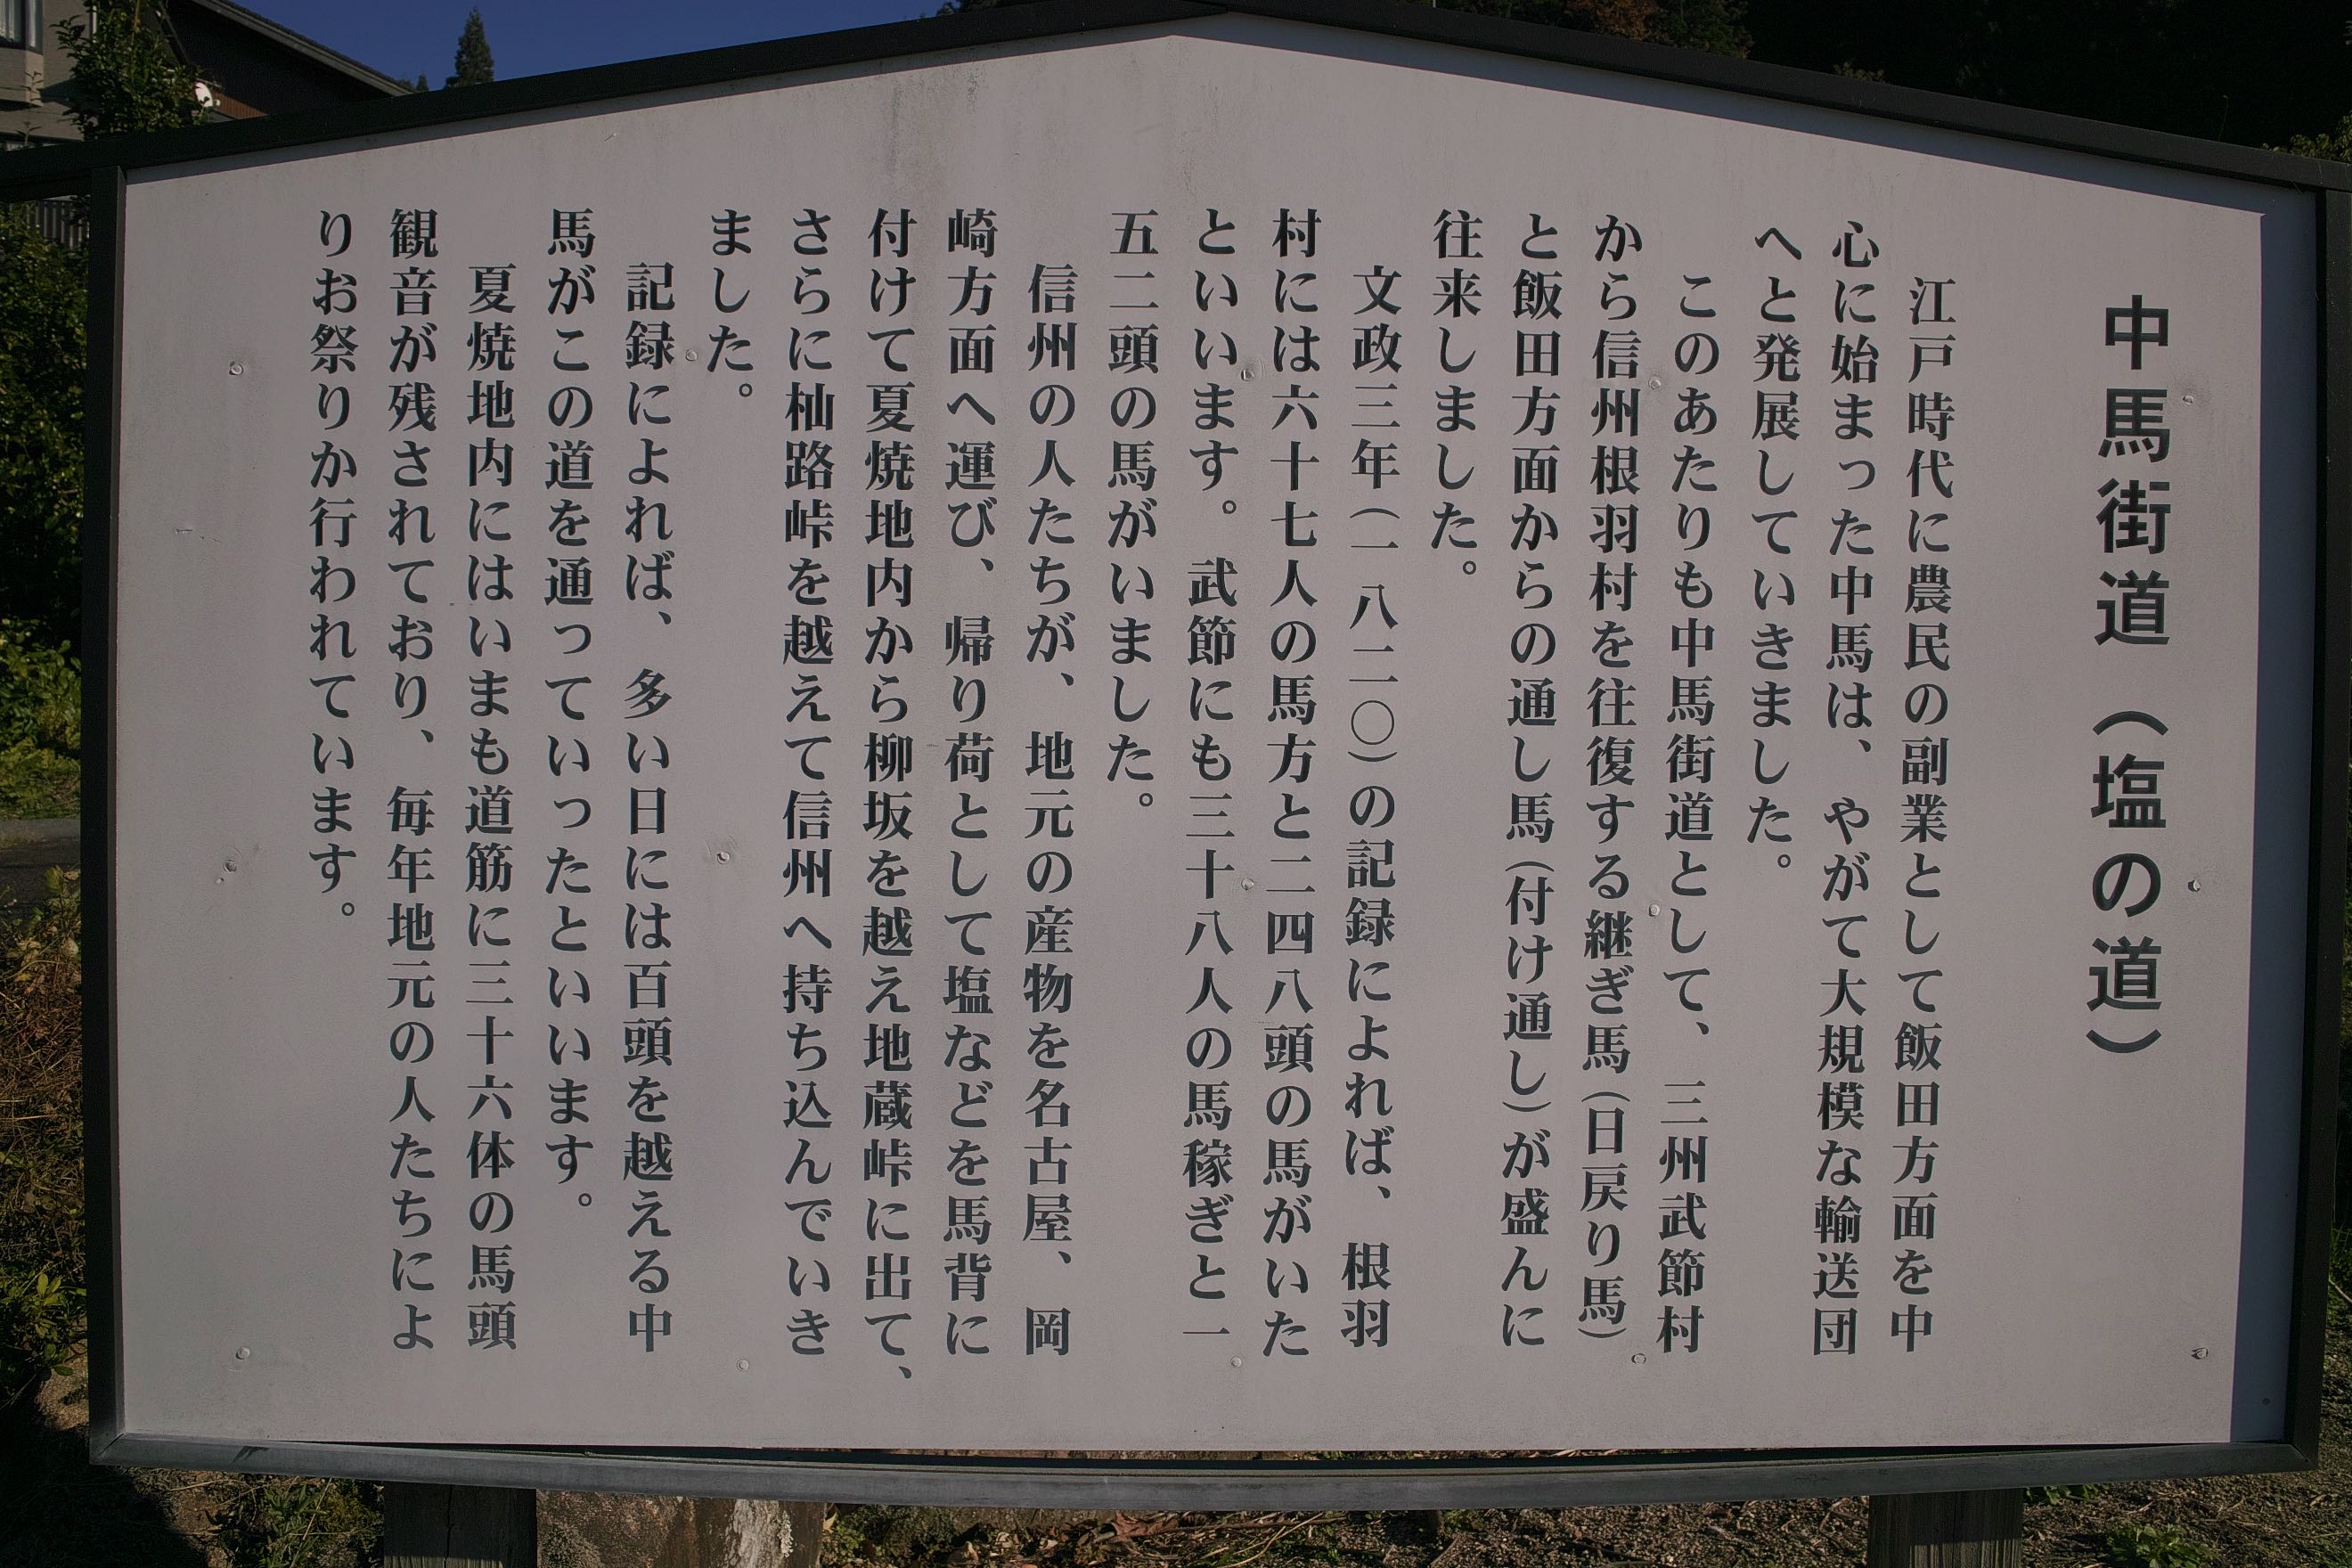 中馬街道（塩の道）
江戸時代に農民の副業として飯田方面を中
心に始まった中馬は、やがて大規模な輸送団
へと発展していきました。
このあたりも中馬街道として、三州武節村
から信州根羽村を往復する継ぎ馬（日戻り馬）
と飯田方面からの通し馬（付け通し）が盛んに
往来しました。
文政三年（一八二〇）の記録によれば、根羽
村には六十七人の馬方と二四八頭の馬がいた
といいます。武節にも三十八人の馬稼ぎと一
五二頭の馬がいました。
信州の人たちが、地元の産物を名古屋、岡
崎方面へ運び、帰り荷として塩などを馬背に
付けて夏焼地内から柳坂を越え地蔵峠に出て、
さらに杣路峠を越えて信州へ持ち込んでいき
ました。
記録によれば、多い日には百頭を越える中
馬がこの道を通っていったといいます。
夏焼地内にはいまも道筋に三十六体の馬頭
観音が残されており、毎年地元の人たちによ
りお祭りか行われています。